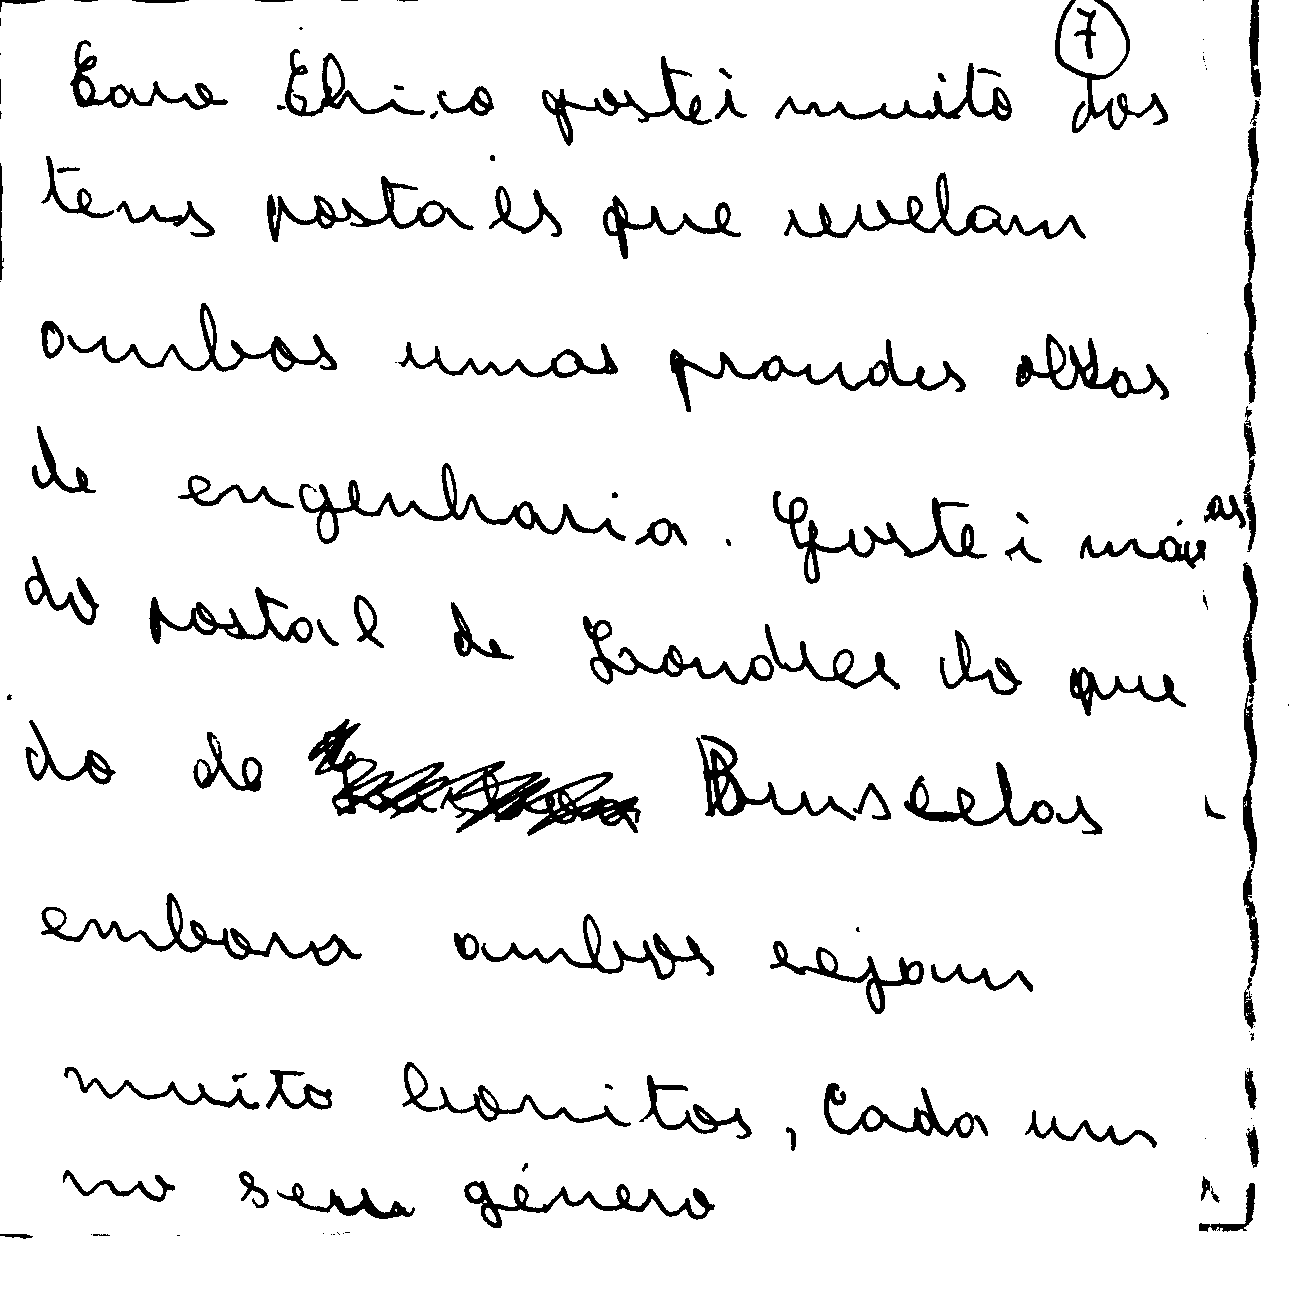 7
Caro Chico gostei muito dos
teus postais que revelam
ambos umas grandes obras
de engenharia. Gostei mais
do postal de Londres do que
do de Bruxelas
embora ambos sejam
muito bonitos, cada um
no seu género